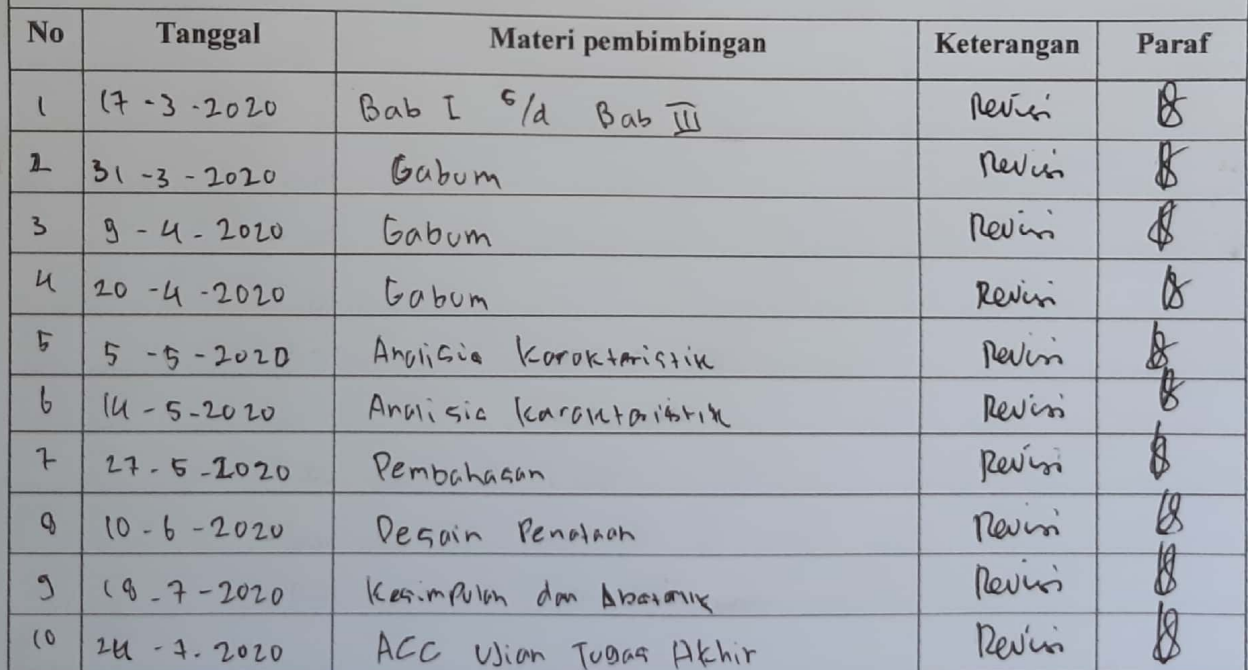 No Tanggal Materi pembimbingan Keterangan Paraf
1 17 - 3 - 2020 Bab I s/d Bab III Revisi
2 31 - 3 - 2020 Gabum Revisi
3 9 - 4 - 2020 Gabum Revisi
4 20 - 4 - 2020 Gabum Revisi
5 5 - 5 - 2020 Analisis Karakteristik Revisi
6 14 - 5 - 2020 Analisis Karakteristik Revisi
7 27 - 5 - 2020 Pembahasan Revisi
8 10 - 6 - 2020 Desain Penataan Revisi
9 18 - 7 - 2020 Kesimpulan dan Abstrak Revisi
10 24 - 7 - 2020 ACC Ujian Tugas Akhir Revisi